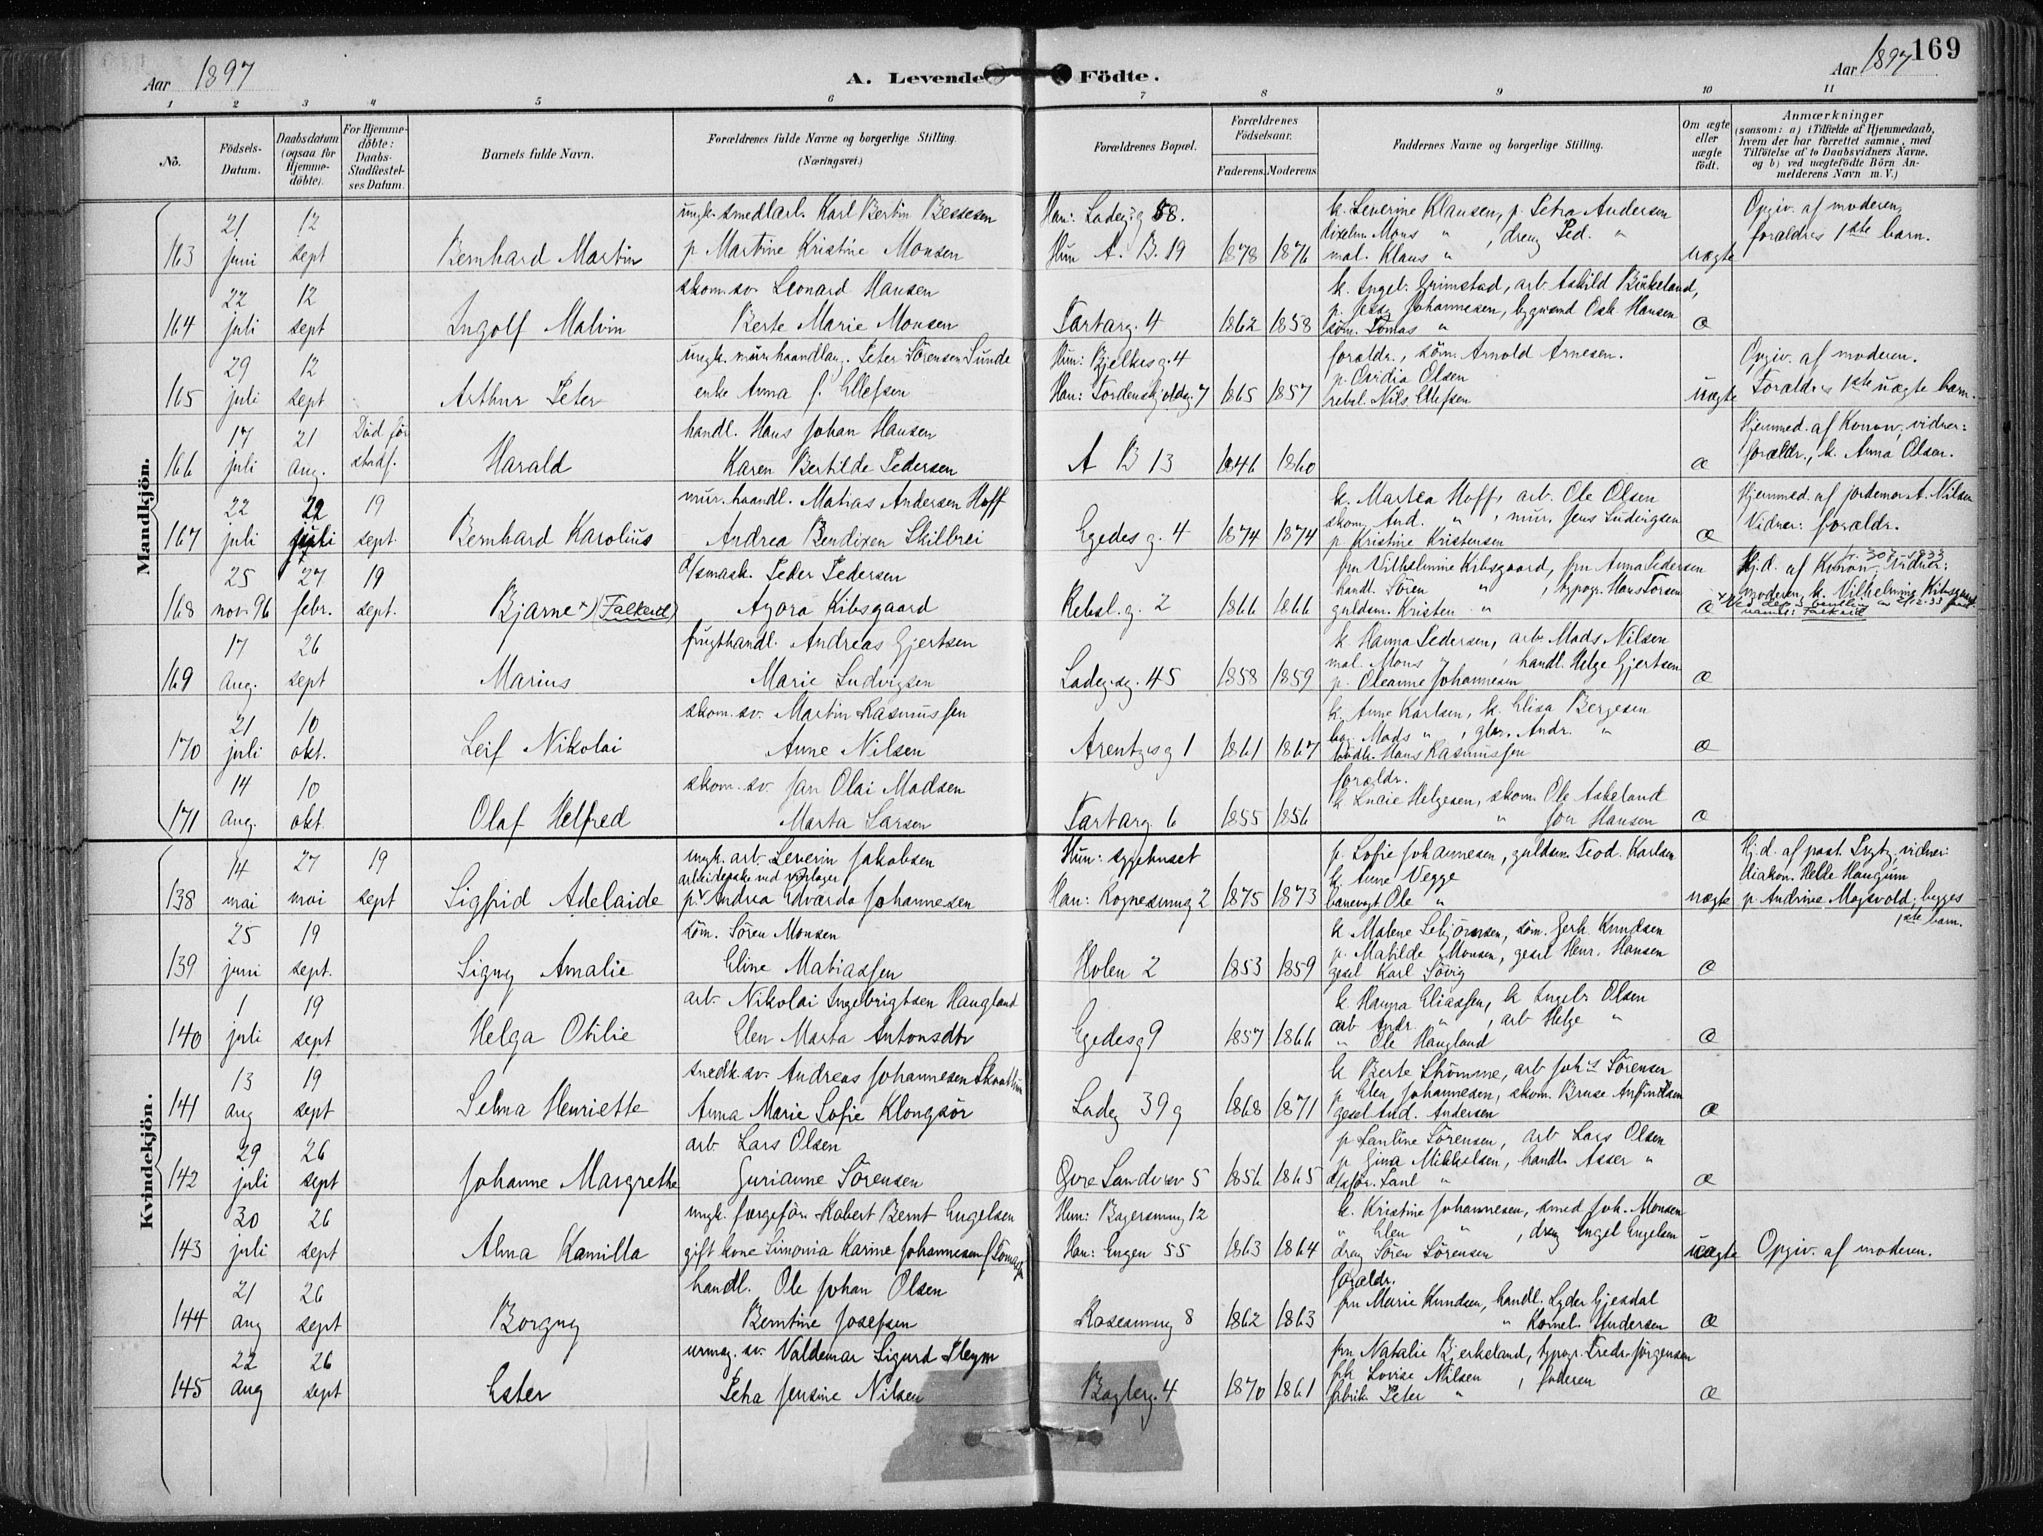 Aar 1897
A. Levende Födte.
Aar 1897
169
1 2 3 4 5 6 7 8 9 10 11
No.
Födsels-Datum.
Daabsdatum (ogsaa for Hjemme-döbte).
For Hjemme-döbte: Daabs-Stadfæstel-ses Datum.
Barnets fulde Navn.
Forældrenes fulde Navne og borgerlige Stilling. (Næringsvei.)
Forældrenes Bopæl.
Forældrenes Födselsaar.
Faderens. Moderens.
Faddernes Navne og borgerlige Stilling.
Om ægte eller uægte födt.
Anmærkninger
(saasom: a) i Tilfælde af Hjemmedaab, hvem der har forrettet samme, med Tilföielse af to Daabsvidners Navne, og b) ved uægtefödte Börn An-melderens Navn m. V.)
Mandkjön.
21 12 ungk. smedarb. Karl Bertin Bessesen Han: Ladeg.g 58. k. Severine Klausen, p. Petra Andersen Opgiv. af moderen,
163 juni sept Bernhard Martin p. Martine Kristine Monsen Hun A. B. 19 1878 1876 Mons " , dreng Ped. " mal. Klaus " uægte forældres 1ste barn.
22 12 skom. sv. Leonard Hansen k. Ingeb. Grimstad, arb. Askild Birkeland,
164 juli sept Ingolf Malvin Berte Marie Monsen Tartarg. 4 1862 1858 p. Johannesen, Osk. Hansen söm. Tomas " æ
29 12 ungk. murhaandlang. Peter Sörensen Sunde Hun: Bjelkesg. 4 forældr., söm. Arnold Arnesen. Opgiv. af moderen.
165 juli sept Arthur Peter enke Anna f. Ellefsen Han: Tordenskjoldsg. 7 1865 1857 p. Ovidia Olsen rebsl. Nils Ellefsen uægte Forældres 1ste uægte barn.
17 21 Död för handl. Hans Johan Hansen Hjemmed. af Konow, vidner:
166 juli aug. stadf. Harald Karen Bertilde Pedersen A B 13 1846 1860 æ forældr., k. Anna Olsen.
22 22 19 mur. haandl. Matias Andersen Hoff k. Martea Hoff, arb. Ole Olsen Hjemmed. af jordemor A. Nilsen
167 juli juli sept. Bernhard Karolius Andrea Bendixen Skilbrei Egedesg. 4 1874 1874 skom. And. " , mur. Jens Ludvigsen p. Kristine Kristensen æ Vidner: forældr.
25 27 19 Peder Pedersen fru Vilhelmine Kibsgaard, fru Anna Pedersen Hj.d. af Konow, Vidner:
168 nov. 96 febr. sept. Bjarne x) (Falkeid) Agora Kibsgaard Rebsl.g. 2 1866 1866 handl. Sören " , typogr. Hans Torsen guldsm. Kristen " æ moderen, k. Vilhelmine Kibsgaard
17 26 frugthandl. Andreas Gjertsen k. Hanna Pedersen, arb. Mads Nilsen
169 aug. sept Marius Marie Ludvigsen Ladeg.sg. 45 1858 1859 mal. Mons " , handl. Helge Gjertsen p. Oleanne Johannesen æ
21 10 skom. sv. Martin Rasmussen k. Anne Karlsen, k. Elisa Bergesen
170 juli okt. Leif Nikolai Anne Nilsen Arentzesg 1 1861 1867 Mads " , Andr. " Hans Rasmussen æ
14 10 skom. sv. Jan Olai Madsen forældr.
171 aug. okt. Olaf Helfred Marta Larsen Tartarg. 6 1855 1856 k. Lucie Helgesen, skom. Ole Askeland " Hansen æ
Kvindekjön.
14 27 19 ungk. arb. Severin Jakobsen Hun: sygehuset p. Sofie Johannesen, guldsm. Teod. Karlsen Hj.d. af past. vidner:
138 mai mai sept Sigfrid Adelaide p. Andrea Edvarda Johannesen Han: Rognesmug 2 1875 1873 k. Anne Vegge banevogt Ole " uægte diakon. Helde Haugum p. Andrine Magsvold, begges 1ste barn.
25 19 söm. Sören Monsen k. Malene Schjörnsen, söm. Gerh. Knudsen
139 juni sept. Signy Amalie Eline Matiassen Holen 2 1853 1859 p. Matilde Monsen, gesel Henr. Hansen gesel Karl Sörig æ
1 19 arb. Nikolai Ingebrigtsen Haugland k. Hanna Eliassen, k. Ingebr. Olsen
140 juli sept Helga Otilie Elen Marta Antonsdtr Egedesg 9 1857 1866 arb. Andr. " , arb Helge " " Ole Haugland æ
13 19 snedk. sv. Andreas Johannesen k. Berte Strömme, arb. Johs Sörensen
141 aug sept Selma Henriette Anna Marie Sofie Klongsör Ladeg 39 g 1868 1871 p. Elen Johannesen, skom. Bruse Anfindsen gesel And. Andersen æ
29 26 arb. Lars Olsen p Pauline Sörensen, arb Lars Olsen
142 juli sept Johanne Margrethe Gurianne Sörensen Övre Sandviksv 5 1856 1865 p Gina Mikkelsen, handl. Asser " Paul " æ
30 26 ungk. færgeför. Robert Bernt Engelsen Hun: Bagersmug 12 k. Kristine Johannesen, smed Joh. Monsen
143 juli sept Alma Kamilla gift kone Simonia Karine Johannesen f. Tomassen Han: Engen 55 1863 1864 " Elen " , dreng Engel Engelsen dreng Sören Sörensen uægte Opgiv. af moderen.
21 26 handl. Ole Johan Olsen forældr.
144 aug sept Borgny Berntine Josefsen Rosesmug 8 1862 1863 fru Marie Knudsen, handl. Lyder Gjesdal " Kornel. Andersen æ
22 26 urmag. sv. Valdemar Sigurd Pleym fru Natalie Bjerkeland, typogr. Fredr. Jörgensen
145 aug sept Ester Petra Jensine Nilsen Baglerg. 4 1870 1861 frk Lovise Nilsen , faderen fabrik. Peter " æ